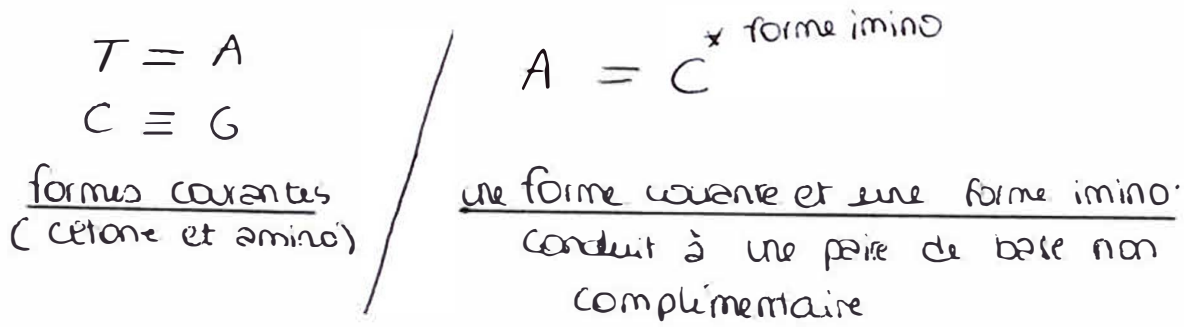 T = A
C ≡ G
formes courantes
(cétone et amino)
A = C* forme imino
une forme courante et une forme imino.
conduit à une paire de base non
complémentaire